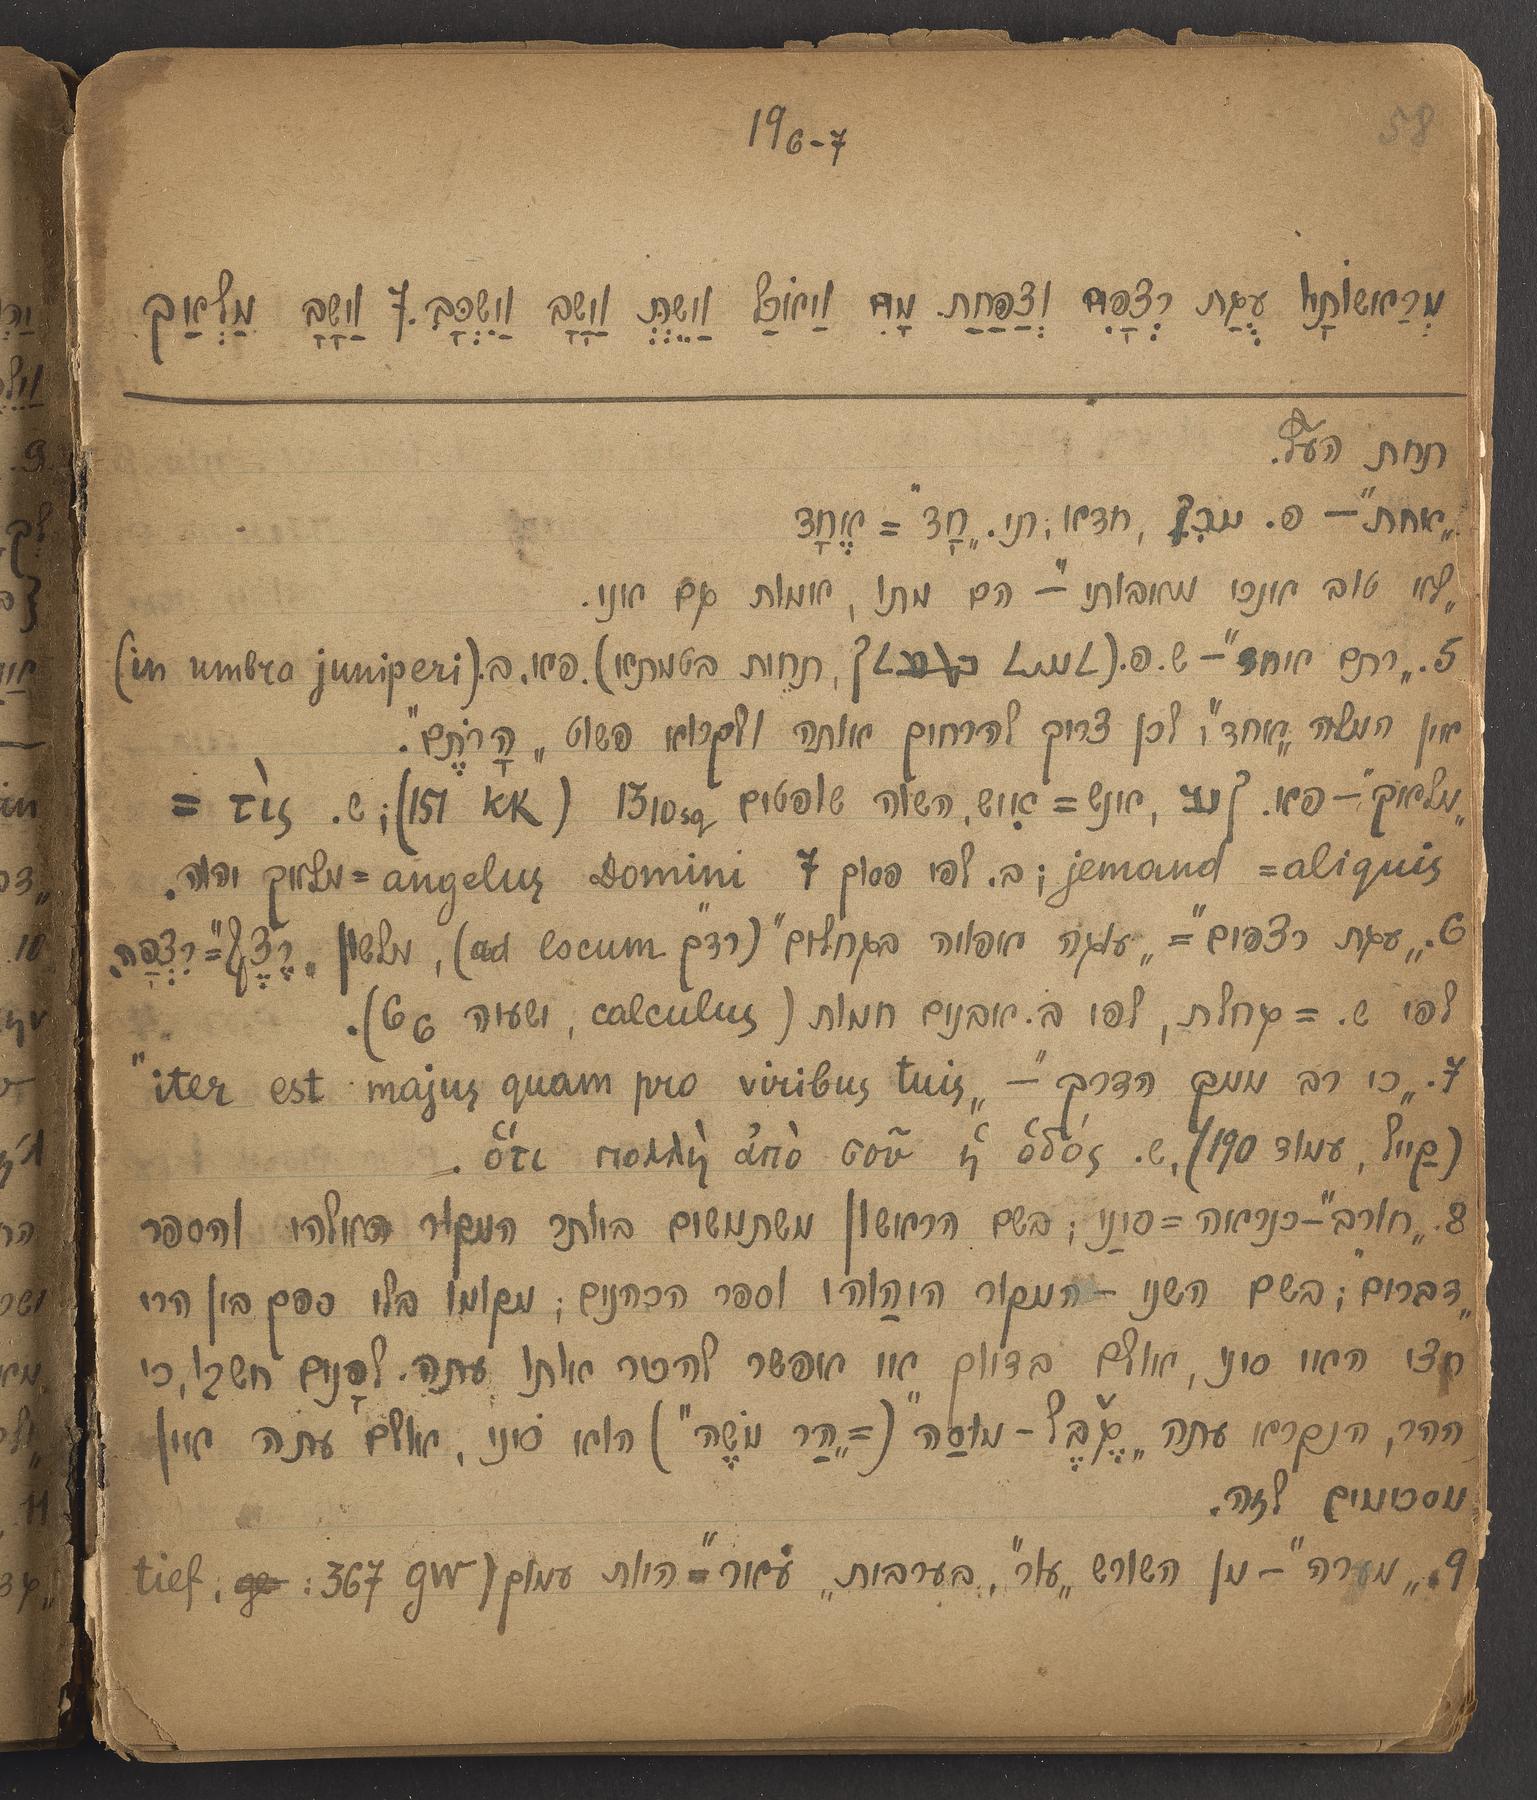 58
19 6-7
מְרַאשׁוֹתָיו עֻגַת רְצָפִים וְצַפַּחַת מָיִם וַיֹאכַל וַיֵּשְׁתְּ וַיָּשָׁב וַיִשְׁכָּב. 7 וַיָּשָׁב מַלְאַךְ
תחת העץ.
„אחת" – פ. חדא; תי. „חָד" = אֶחָד
„לא טוב אנכי מאבותי" – הם מתו, אמות גם אני.
5. „רתם אחד" – ש.פ. (תחית בטמתא). פא. ב. (in umbra juniperi)
אין המלה „אחד"; לכן צריך להרחיק אותה ולקרוא פשוט „הָרֹתֶם".
„מלאך" – פא. אנש = איש, השוה שופטים 13 10sq (KK 151); ש. τὶς =
jemand = aliquis; ב. לפי פסוק 7 angelus Domini = מלאך יהוה.
6. „עגת רצפים" = „עוגה אפויה בגחלים" (רד"ק ad locum), מלשון „רֶצֶף" = רִצְפָּה.
לפי ש. = גחלת, לפי ב. אבנים חמות (calculus, ישעיה 6 6).
7. „כי רב ממך הדרך" – „iter est majus quam pro viribus tuis"
(קַייל, עמוד 190), ש. ὅτι πολλὴ ἀπὸ σοῦ ἡ ὁδός.
8. „חורב" – כנראה = סִינַי; בשם הראשון משתמשים ביותר המקור האלהי והספר
„דברים"; בשם השני – המקור היהַוהי וספר הכהנים; מקומו בלי ספק בין הרי
חצי האי סיני, אולם בדיוק אי אפשר להכיר אותו עתה. לפָנים חשבו, כי
ההר, הנקרא עתה „גֶ'בֶל-מוּסַה" (= „הַר מֹשֶה") הוא סיני, אולם עתה אין
מסכימים לזה.
9. „מערה" – מן השורש „עור", בערבית „ע'ור" = היות עמוק (GW 367: tief,